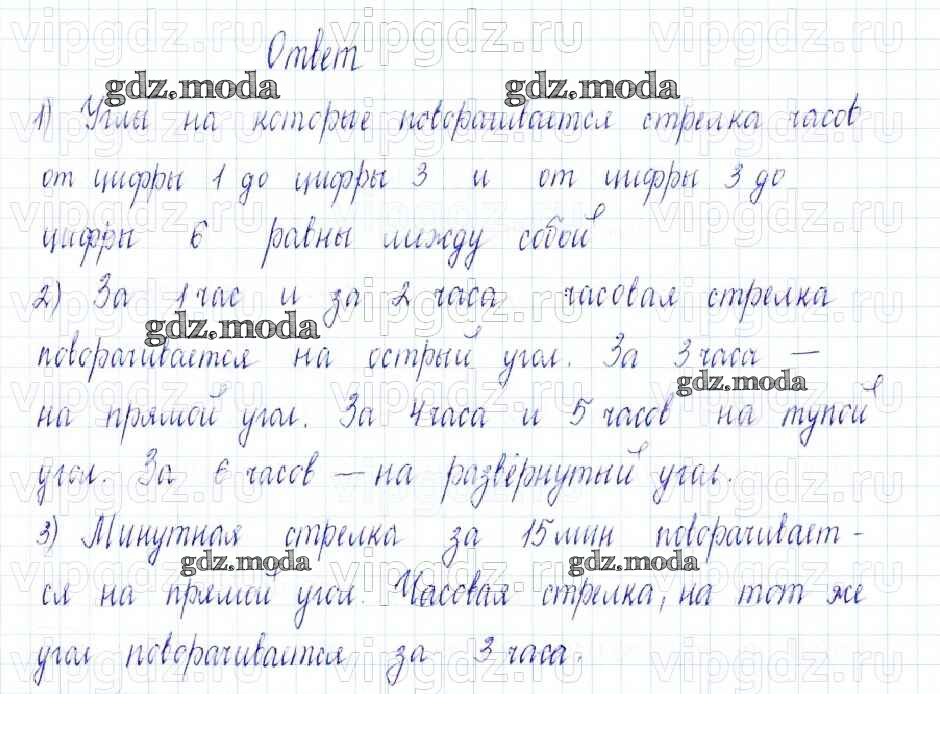 Ответ
1) Углы на которые поворачивается стрелка часов
от цифры 1 до цифры 3 и от цифры 3 до
цифры 6 равны между собой
2) За 1 час и за 2 часа часовая стрелка
поворачивается на острый угол. За 3 часа —
на прямой угол. За 4 часа и 5 часов на тупой
угол. За 6 часов — на развёрнутый угол.
3) Минутная стрелка за 15 мин поворачивает-
ся на прямой угол. Часовая стрелка, на тот же
угол поворачивается за 3 часа.
gdz.moda
gdz.moda
gdz.moda
gdz.moda
gdz.moda
gdz.moda
vipgdz.ru